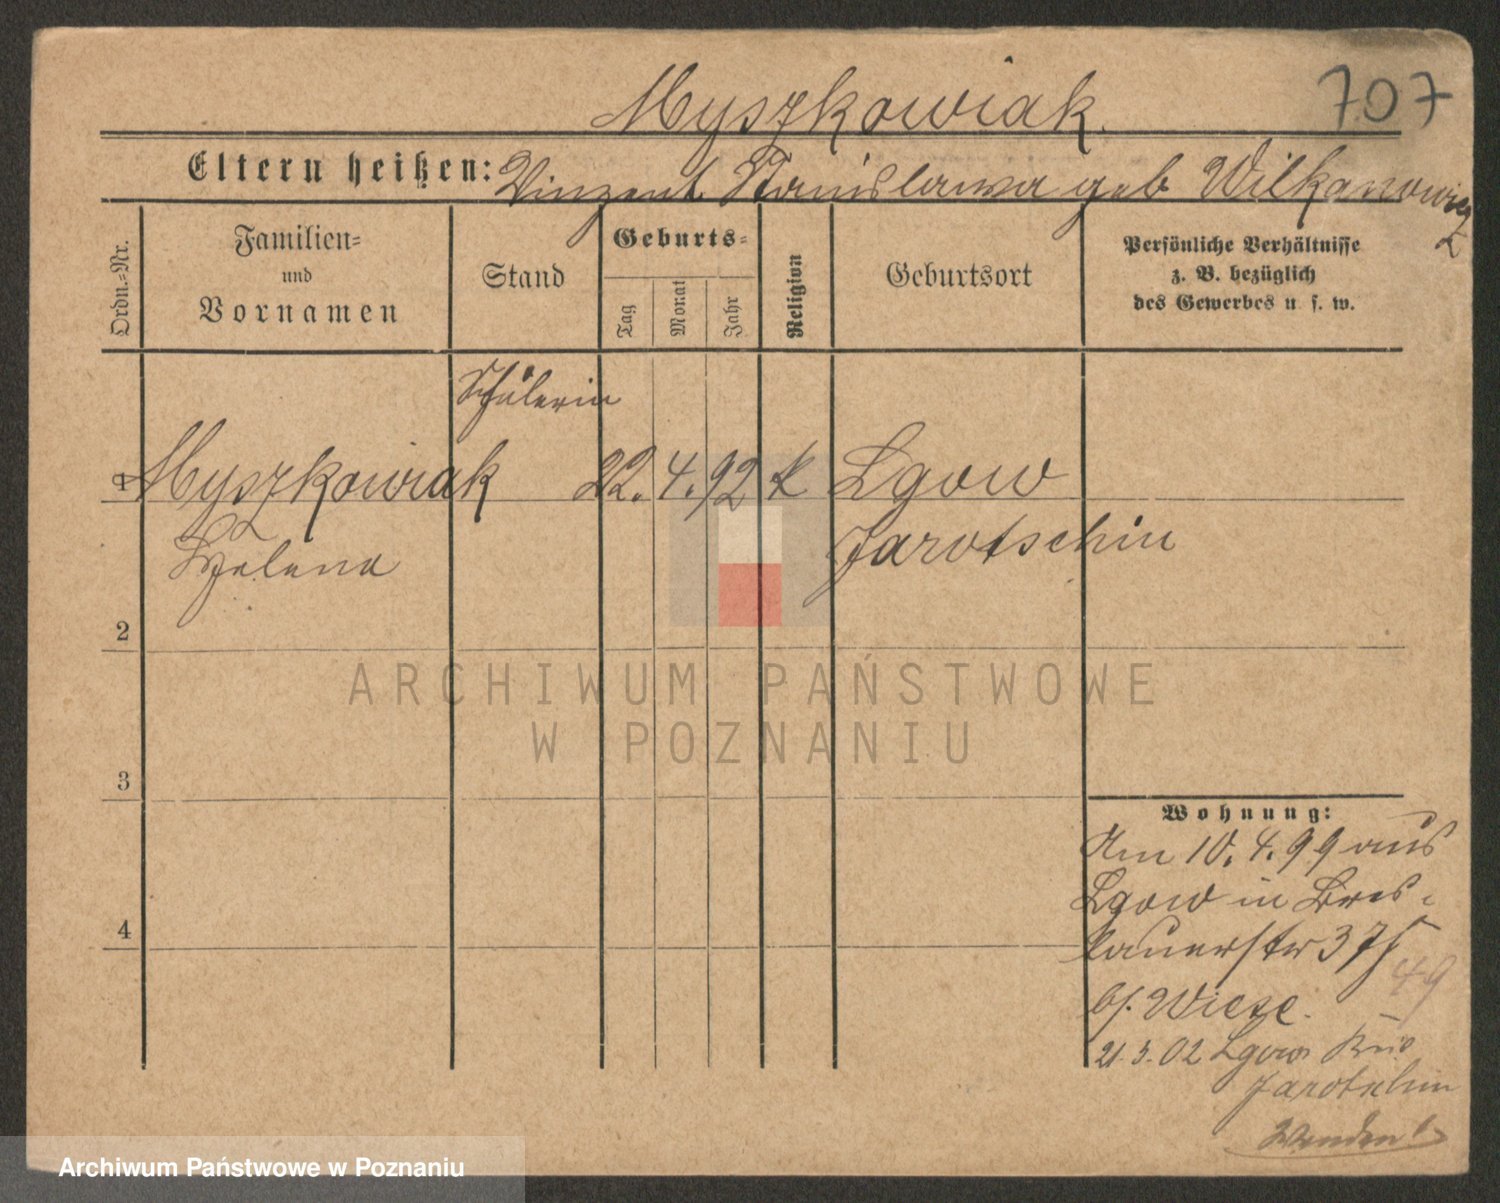 Myszkowiak.
707
Eltern heißen: Vinzent Stanislawa geb Wilkanowicz
Ordn.-Nr.
Familien-
und
Vornamen
Stand
Geburts-
Tag
Monat
Jahr
Religion
Geburtsort
Persönliche Verhältnisse
z. B. bezüglich
des Gewerbes u. s. w.
Schülerin
1 Myszkowiak 22. 4. 92 k Lgow
Helena Jarotschin
2
ARCHIWUM PAŃSTWOWE
W POZNANIU
3
Wohnung:
Am 10. 4. 99 aus
Lgow in Bres-
lauerstr 37
49
b/. Wiese.
4
21.3.02 Lgow Kreis
Jarotschin
Wenden!
Archiwum Państwowe w Poznaniu